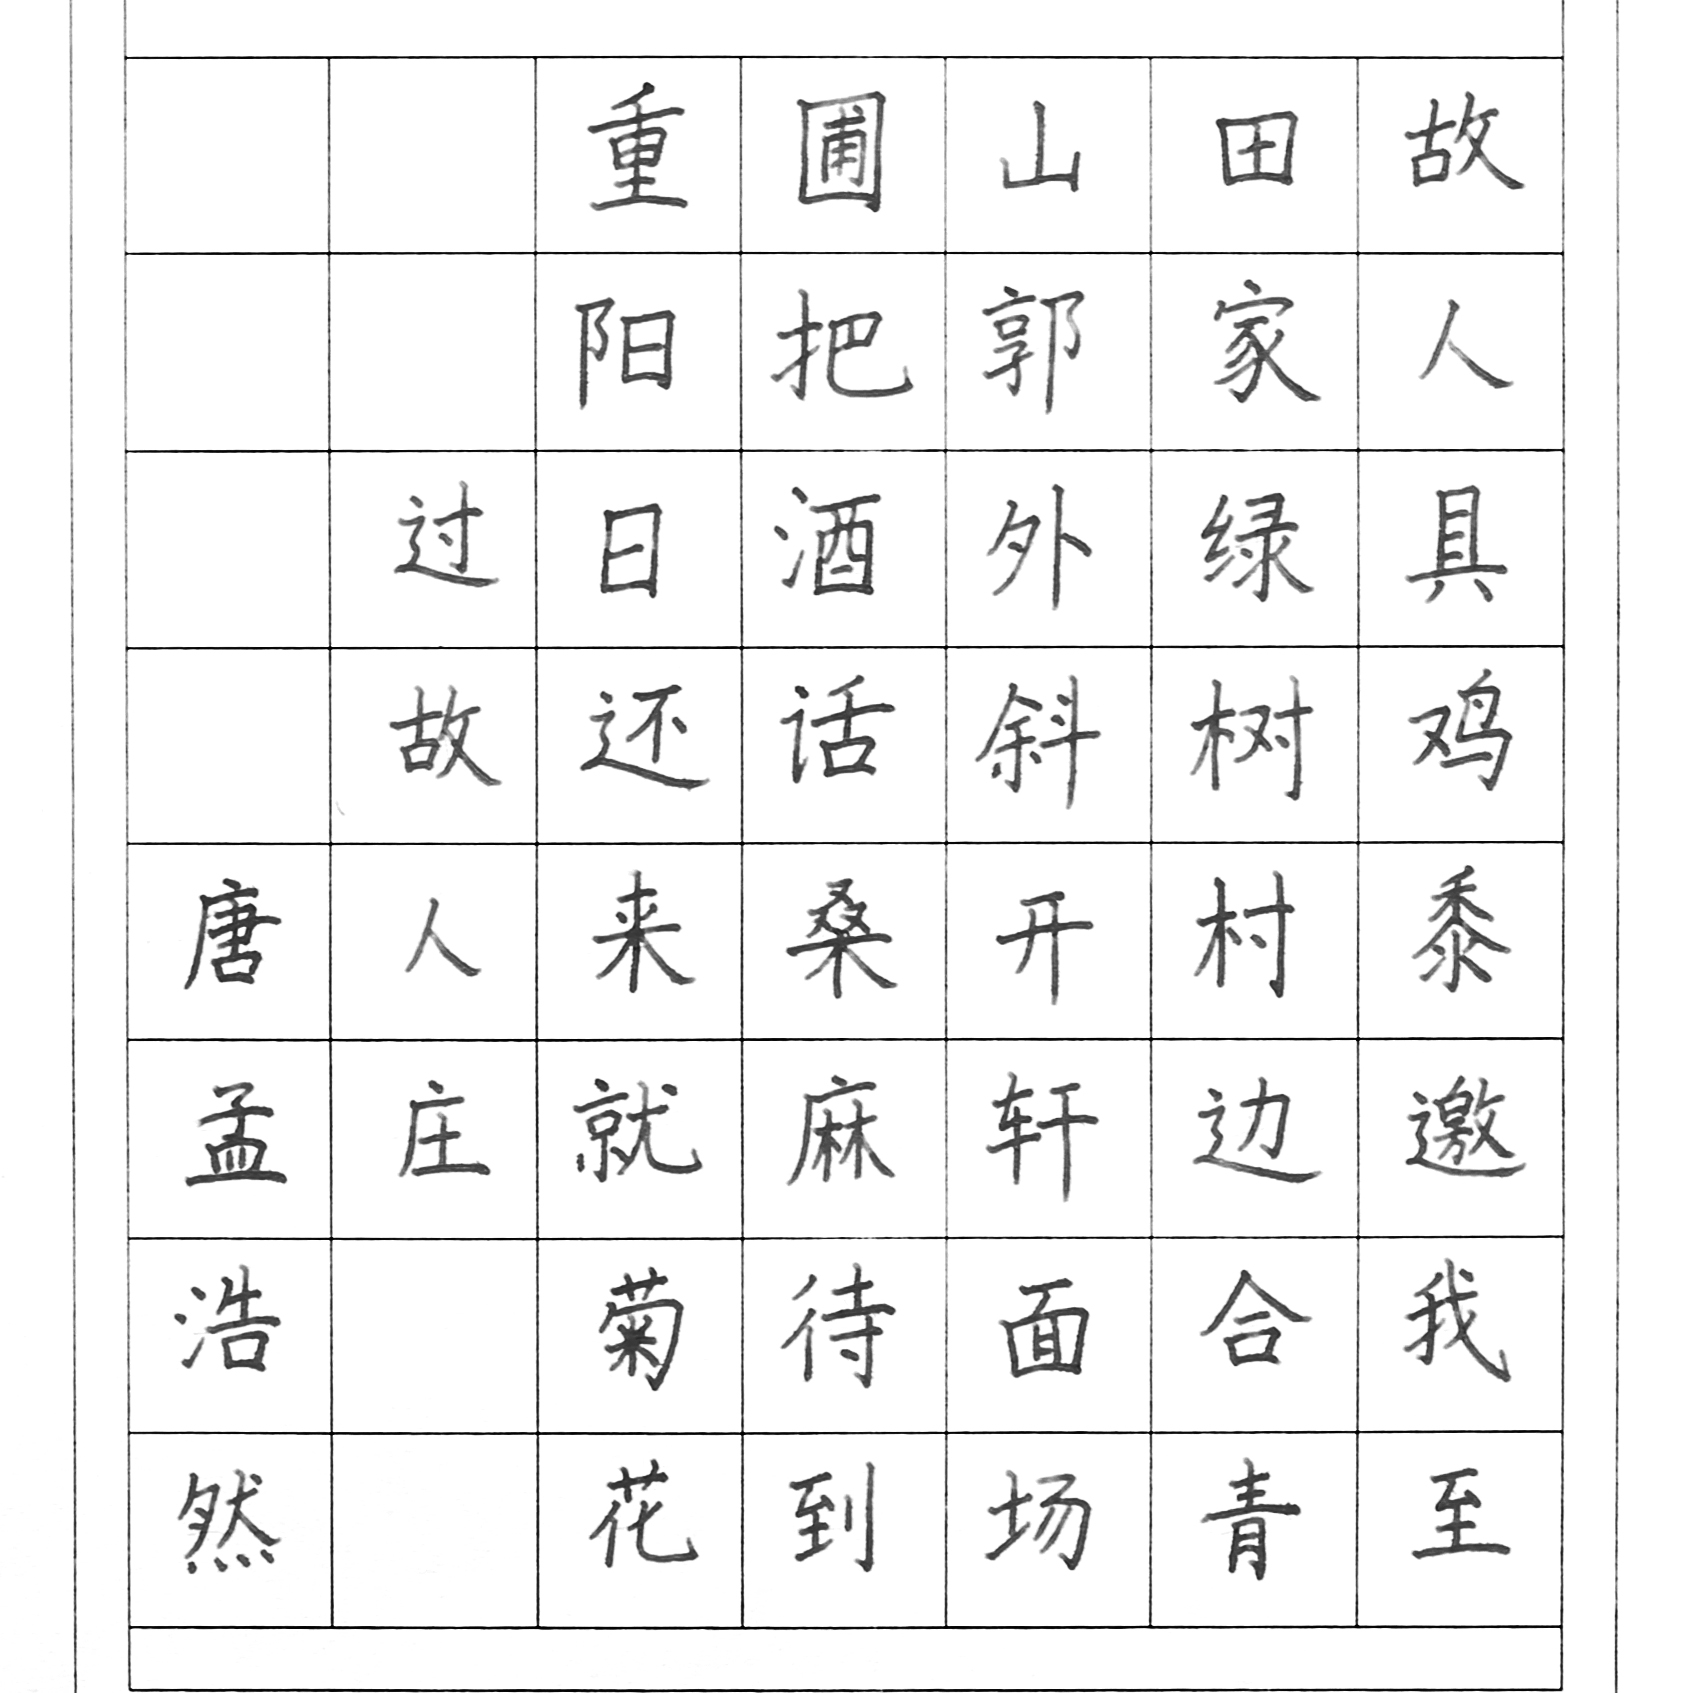 故人具鸡黍邀我至
田家绿树村边合青
山郭外斜开轩面场
圃把酒话桑麻待到
重阳日还来就菊花
过故人庄
唐孟浩然